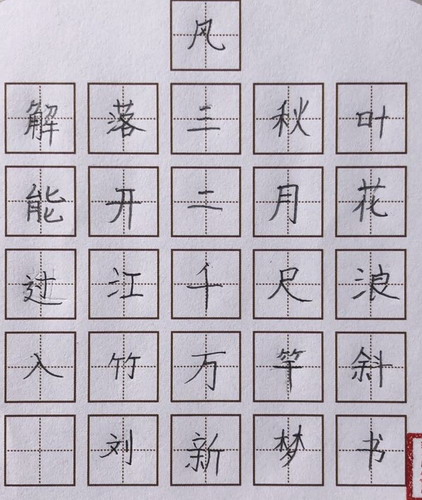 风
解落三秋叶
能开二月花
过江千尺浪
入竹万竿斜
刘新梦书